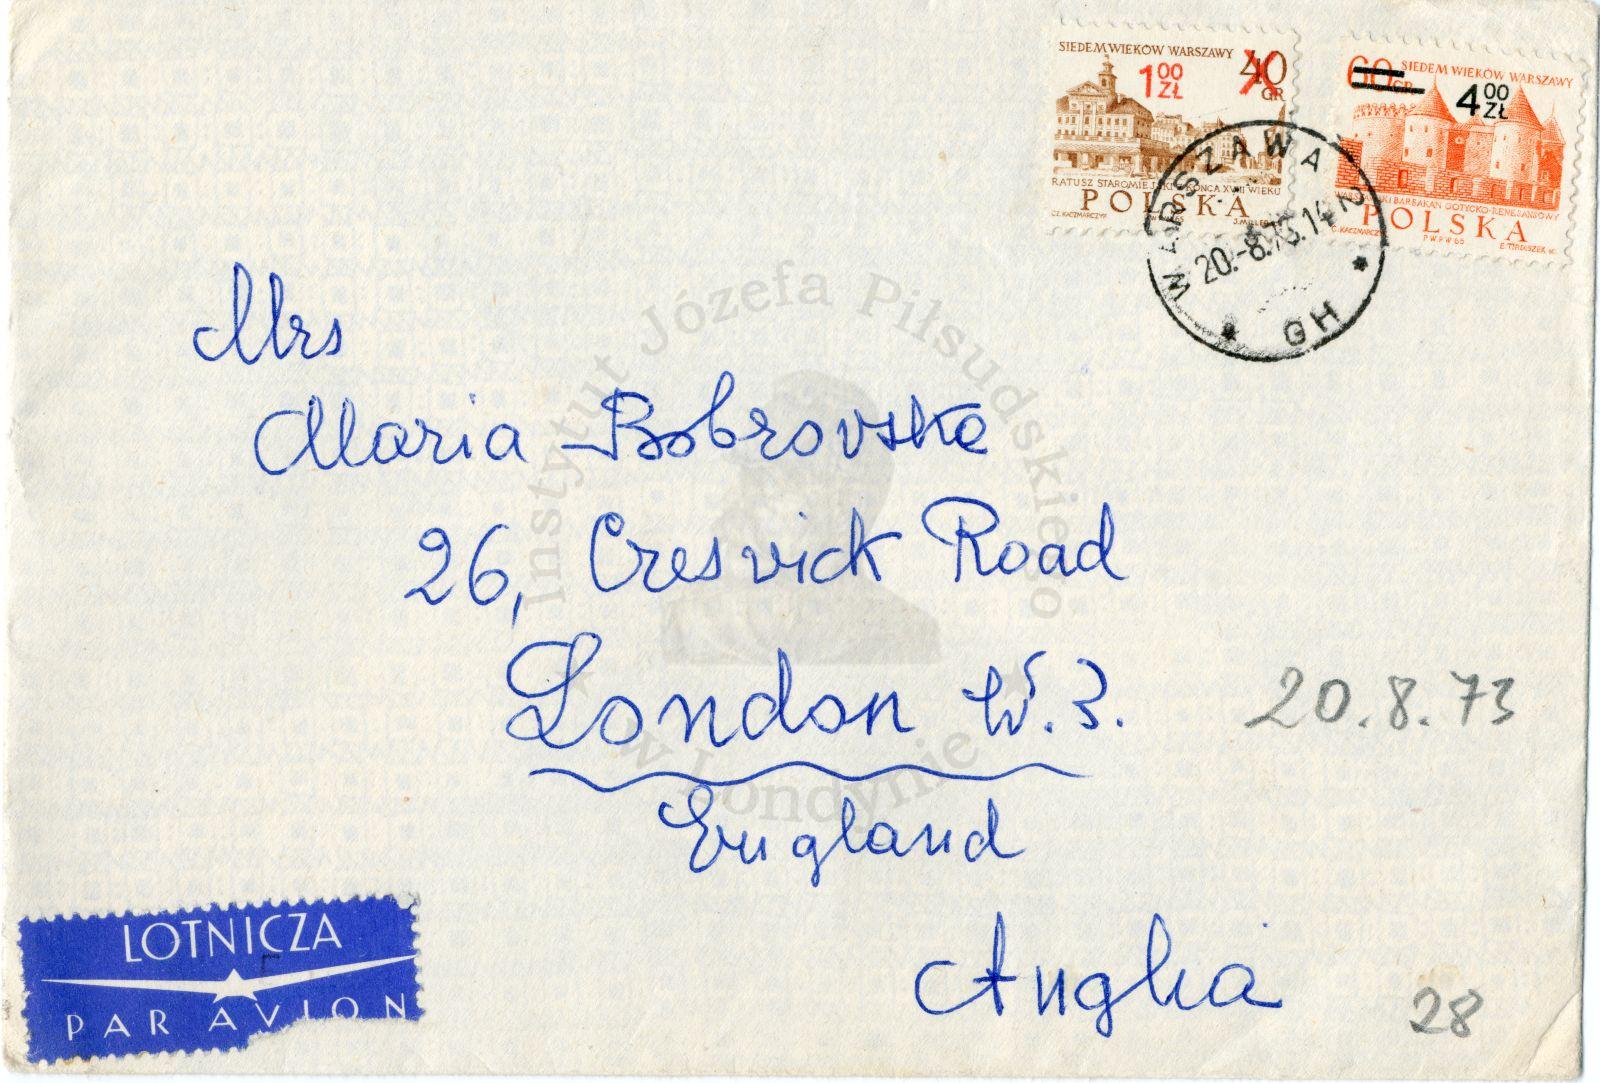 SIEDEM WIEKÓW WARSZAWY
1 00 ZŁ
40 GR
RATUSZ STAROMIEJSKI KOŃCA XVIII WIEKU
POLSKA
CZ. KACZMARCZYK P.W.P.W 65 S. MILLER
60 GR
SIEDEM WIEKÓW WARSZAWY
4 00 ZŁ
BARBAKAN GOTYCKO-RENESANSOWY
POLSKA
C. KACZMARCZ P.W.P.W 65 E. TIRDISZEK sc.
WARSZAWA 2
20.-8.73.14
GH
Mrs
Maria Bobrovska
26, Cresvick Road
London W.3.
20.8.73
England
Anglia
28
LOTNICZA
PAR AVION
Instytut Józefa Piłsudskiego
w Londynie